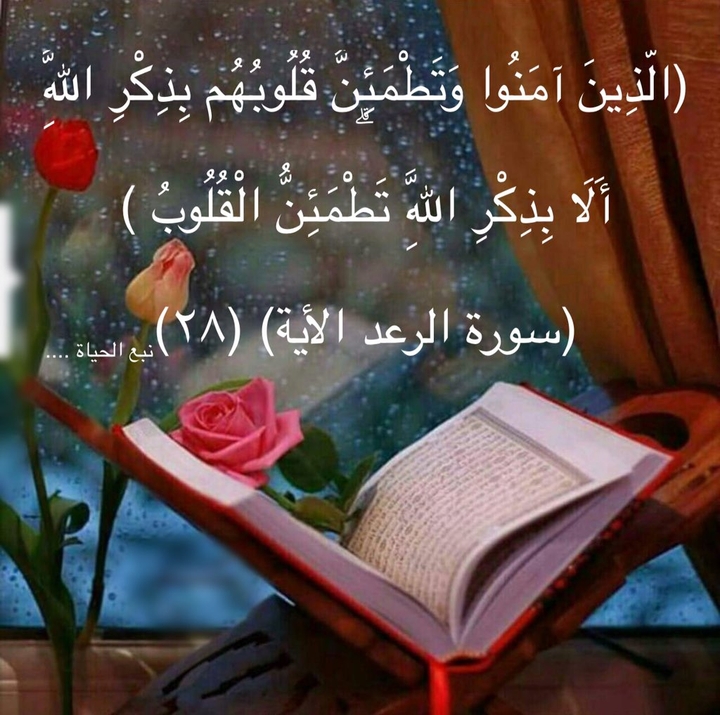 (الَّذِينَ آمَنُوا وَتَطْمَئِنَّ قُلُوبُهُم بِذِكْرِ اللَّهِ ۗ
أَلَا بِذِكْرِ اللَّهِ تَطْمَئِنُّ الْقُلُوبُ )
(سورة الرعد الأية) (٢٨)
نبع الحياة ....